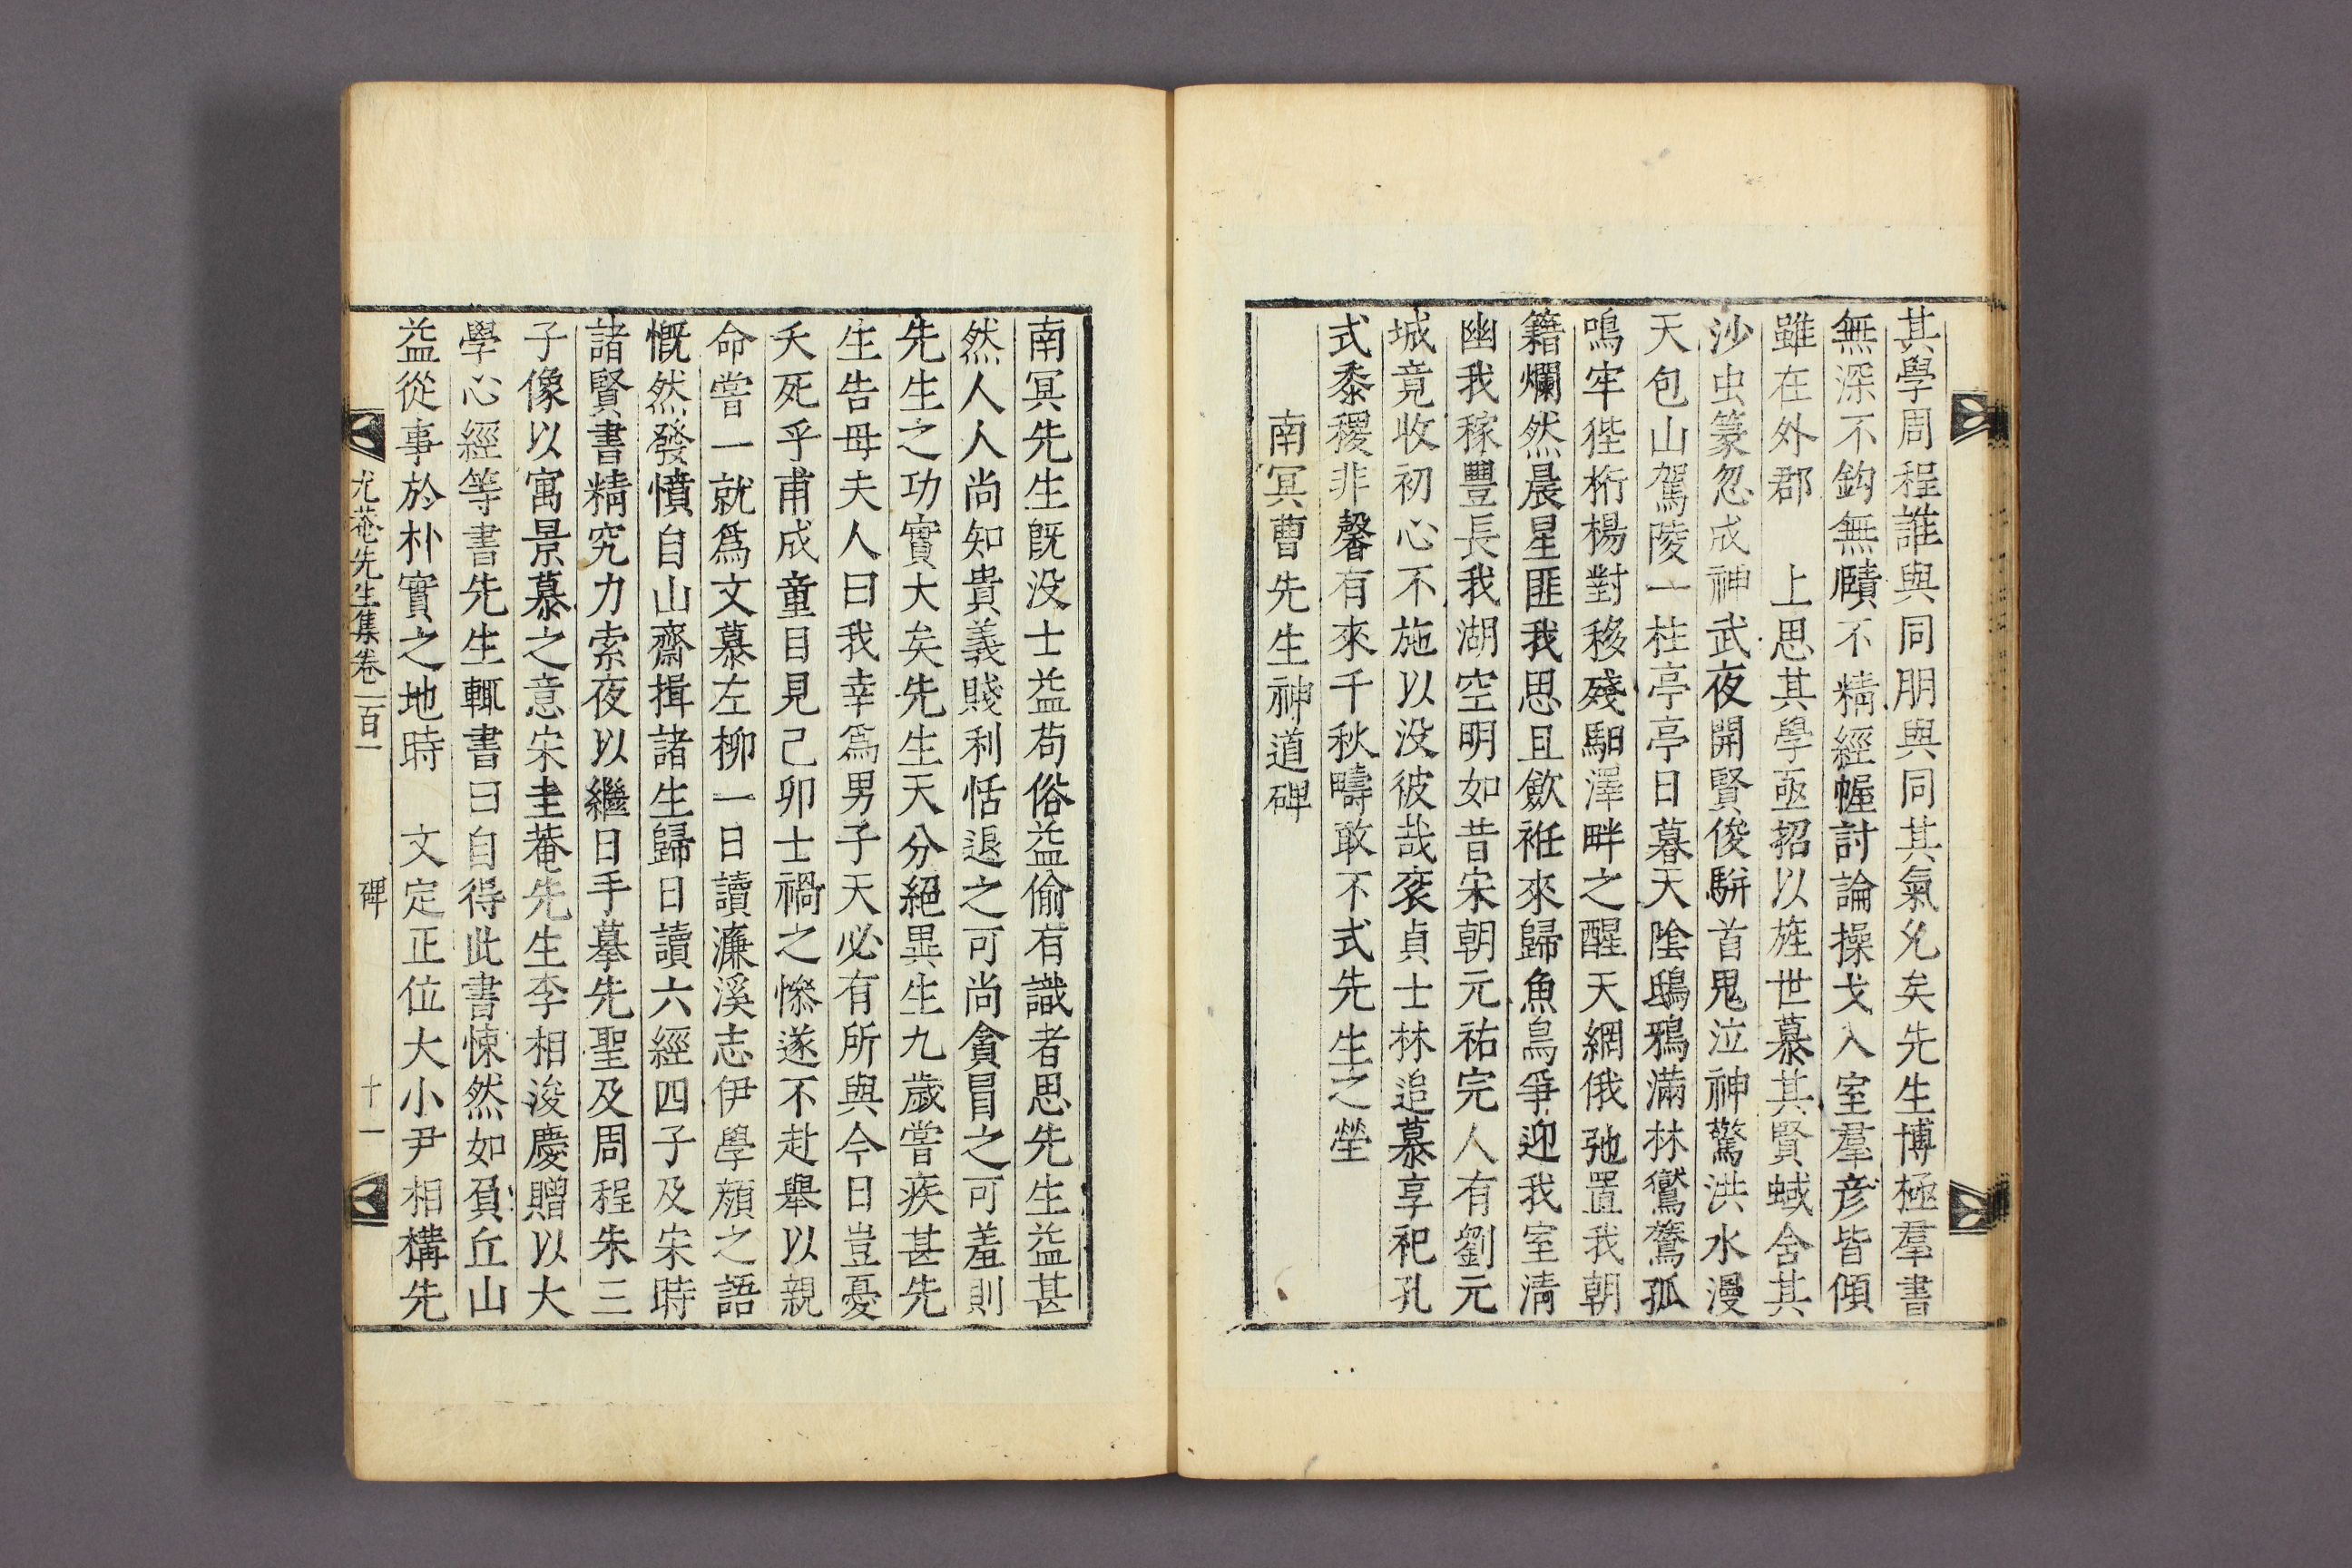 其學周程誰與同朋與同其氣允矣先生博極羣書
無深不鈎無賾不精經幄討論操戈入室羣彦皆傾
雖在外郡　上思其學亟招以旌世慕其賢蜮舍其
沙虫篆忽成神武夜開賢俊騈首鬼泣神驚洪水漫
天包山駕陵一柱亭亭日暮天陰鴟鴉滿林鸞鶩孤
鳴牢狴桁楊對移殘馹澤畔之醒天網俄弛置我朝
籍爛然晨星匪我思且歛袵來歸魚鳥爭迎我室淸
幽我稼豐長我湖空明如昔宋朝元祐完人有劉元
城竟收初心不施以没彼哉袞貞士林追慕享祀孔
式黍稷非馨有來千秋疇敢不式先生之塋
南冥曹先生神道碑
南冥先生旣没士益苟俗益偷有識者思先生益甚
然人人尚知貴義賤利恬退之可尚貪冒之可羞則
先生之功實大矣先生天分絕異生九歲嘗疾甚先
生告母夫人曰我幸爲男子天必有所與今日豈憂
夭死乎甫成童目見己卯士禍之慘遂不赴舉以親
命嘗一就爲文慕左柳一日讀濂溪志伊學顔之語
慨然發憤自山齋揖諸生歸日讀六經四子及宋時
諸賢書精究力索夜以繼日手摹先聖及周程朱三
子像以寓景慕之意宋圭菴先生李相浚慶贈以大
學心經等書先生輒書曰自得此書悚然如負丘山
益從事於朴實之地時　文定正位大小尹相構先
尤菴先生集卷一百一　碑　十一